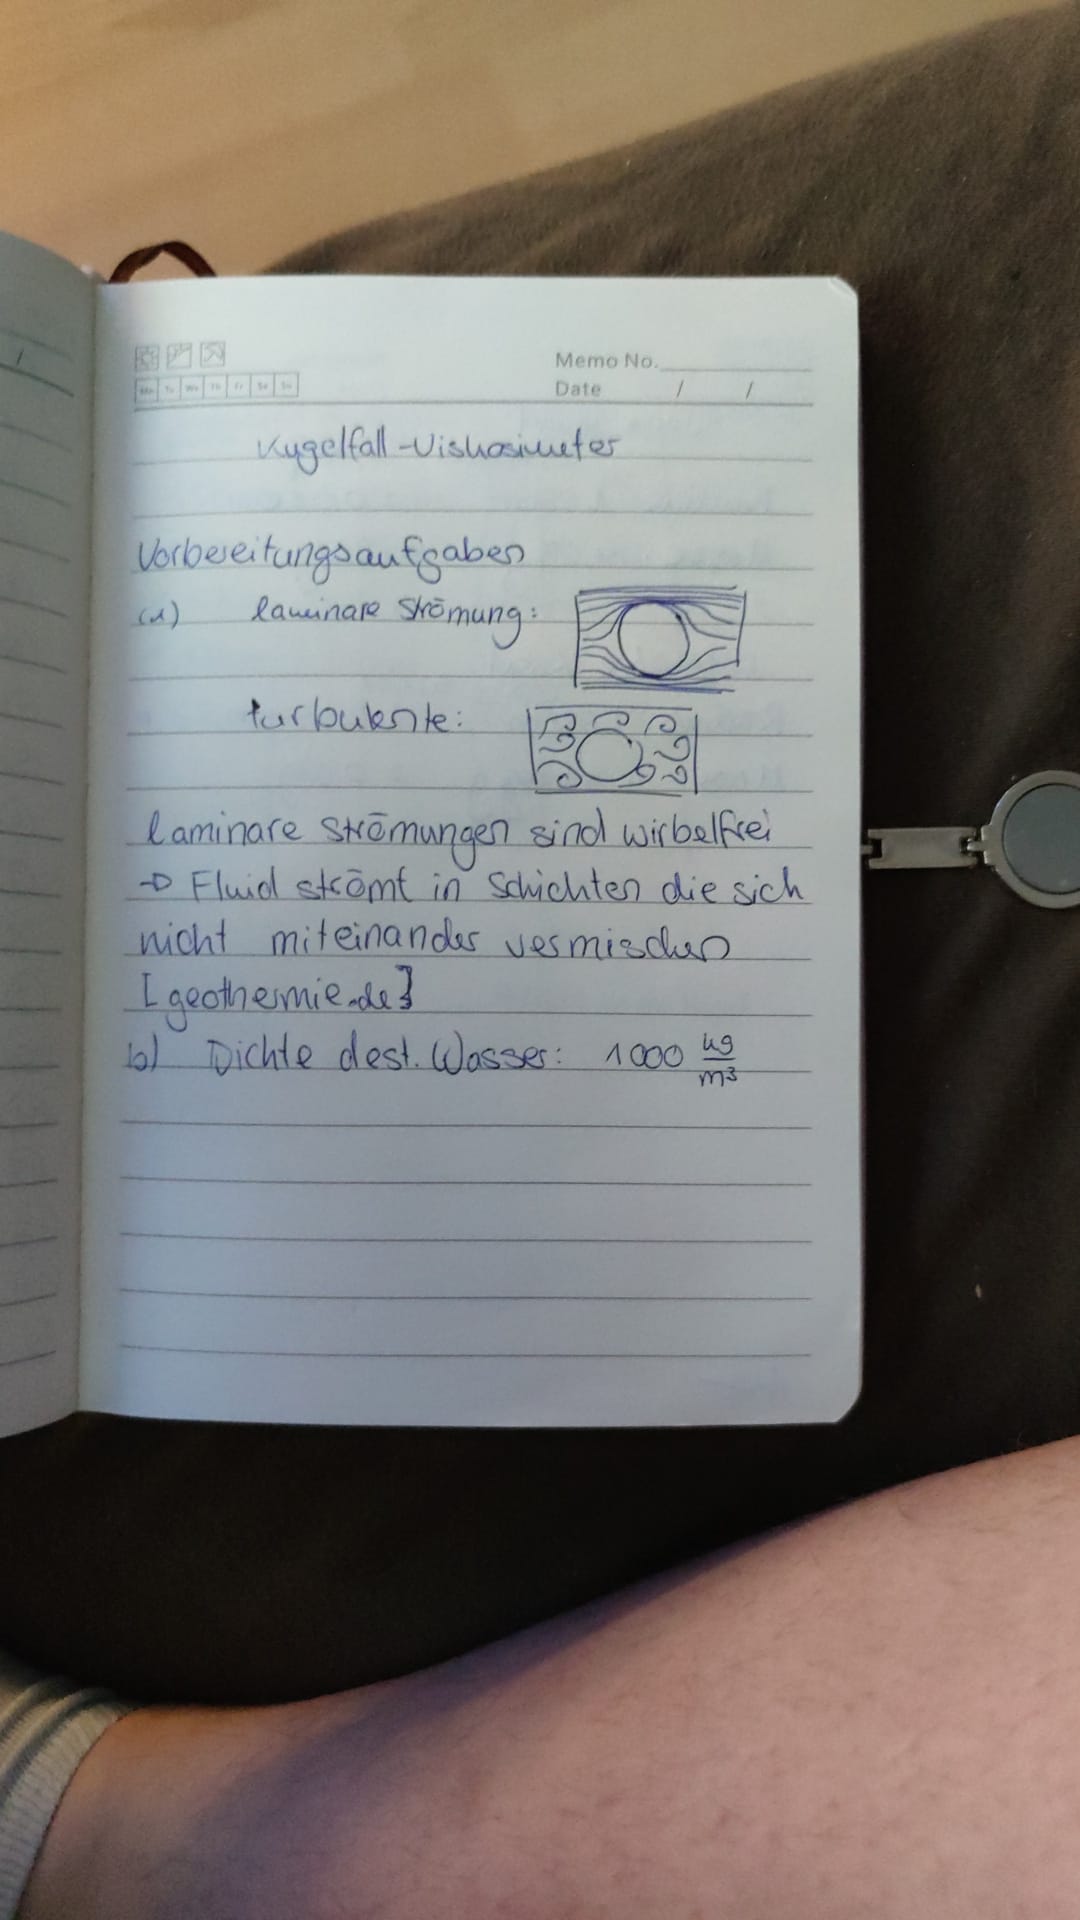 Memo No.
Mo Tu We Th Fr Sa Su
Date / /
Kugelfall-Viskosimeter
Vorbereitungsaufgaben
(a) laminare Strömung:
turbulente:
laminare Strömungen sind wirbelfrei
→ Fluid strömt in Schichten die sich
nicht miteinander vermischen
[geothermie.de]
b) Dichte dest. Wasser: 1000 kg/m³